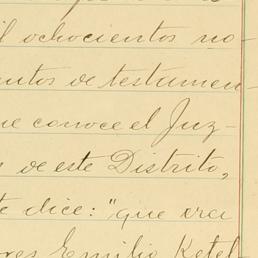 il ochocientos no-
entos de testamen-
ue conoce el Juz-
de este Distrito,
te dice: "que crea
ores Emilio Ketel-